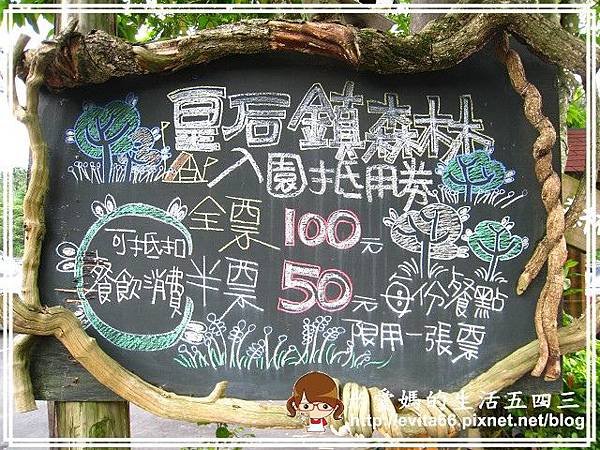 皇后鎮森林
入園抵用券
全票 100元
可抵扣
餐飲消費
半票 50元 每份餐點
限用一張票
媽的生活五四三
http://evita66.pixnet.net/blog